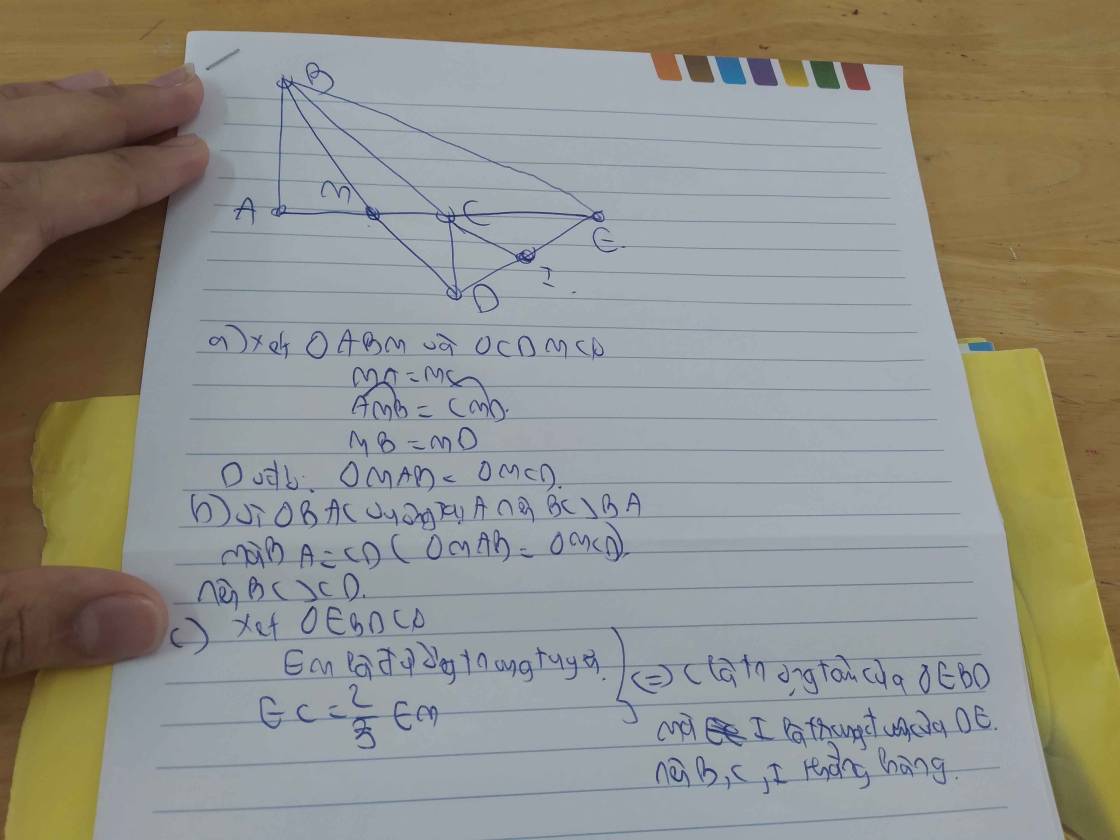 B
A
M
C
E
I
D
a) xét Δ ABM và Δ CDM có
MA = MC
AMB = CMD.
MB = MD
Do đó: Δ MAB = Δ MCD.
b) vì Δ BAC vuông tại A nên BC > BA
mà BA = CD ( Δ MAB = Δ MCD).
nên BC > CD.
c) xét Δ EBD có
EM là đường trung tuyến
EC = 2/3 EM
<=> C là trọng tâm của Δ EBD
mà I là trung điểm của DE.
nên B, C, I thẳng hàng.